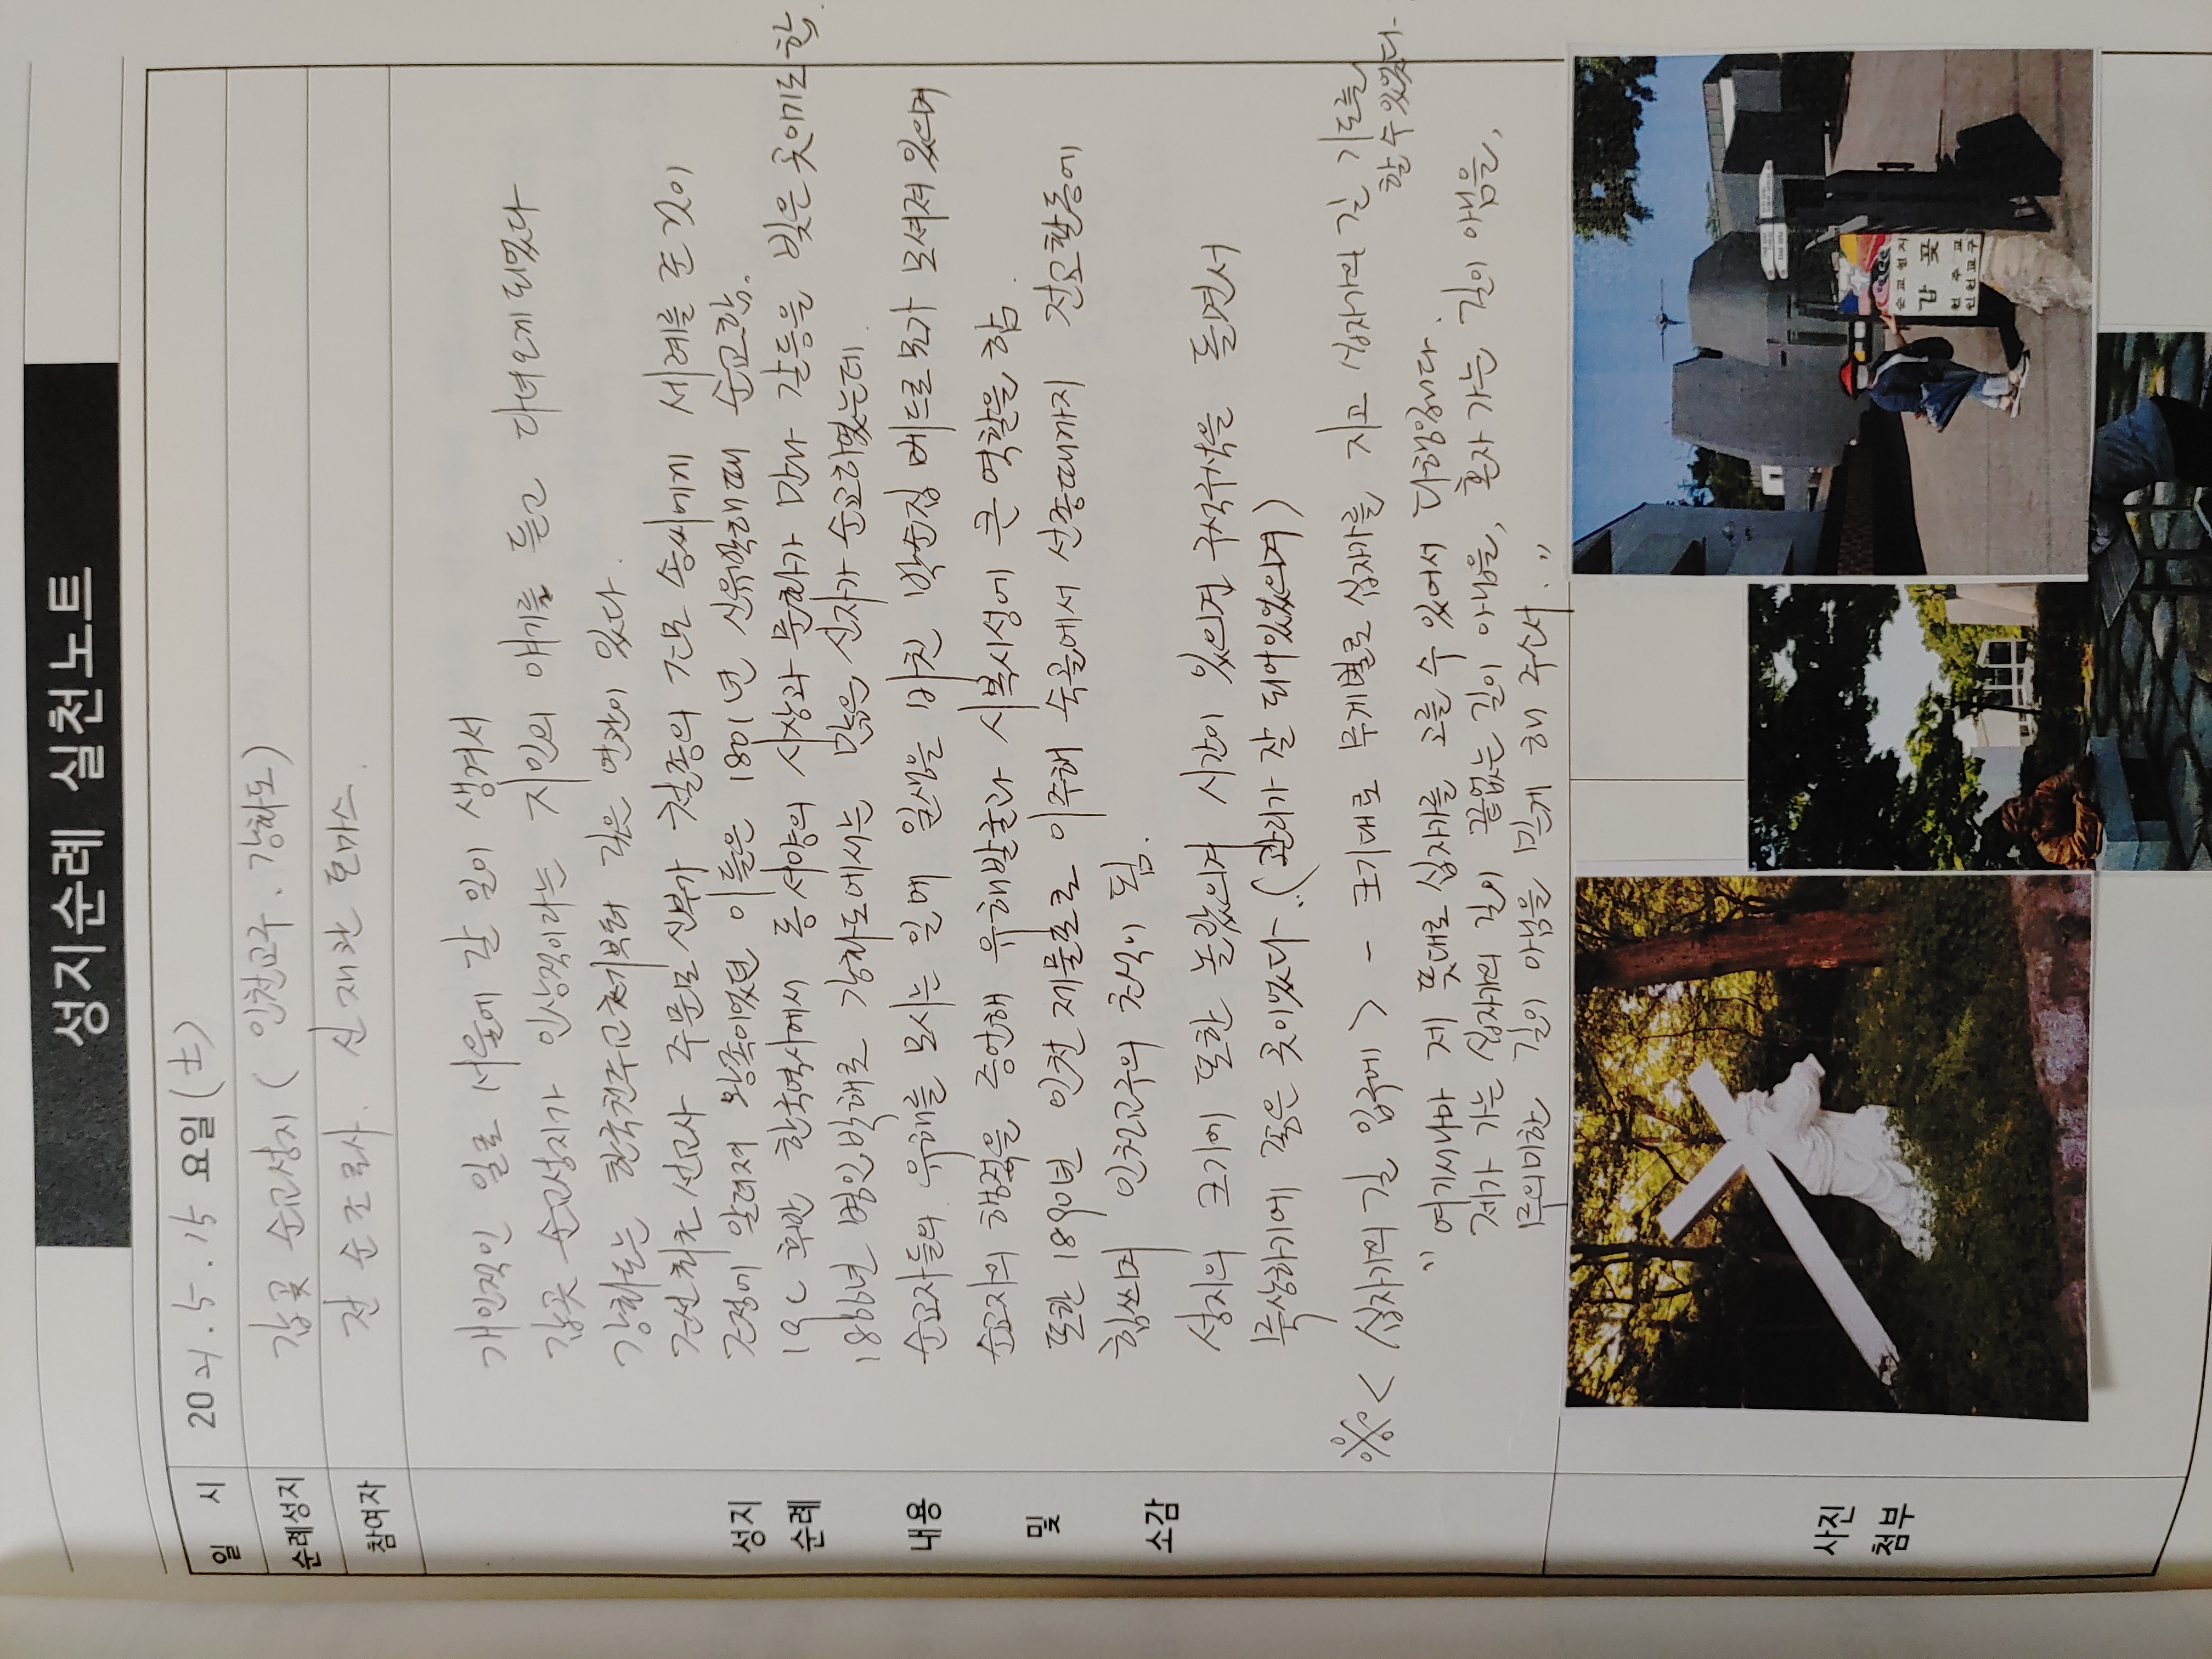 성지순례 실천노트
일 시 2021. 5. 15 요일 (土)
순례성지 갑곶 순교성지 ( 인천교구. 강화도)
참여자 전 순조 로사. 신 재관 토마스.
성지 순례 내용 및 소감
개인적인 일로 서울에 갈 일이 생겨서
갑곶 순교성지가 인상적이라는 지인의 얘기를 듣고 다녀오게 되었다
강화도는 한국천주교초기부터 깊은 연관이 있다.
조선최초 선교사 주문모 신부가 철종의 조모 송씨에게 세례를 준 것이
조정에 알려져 왕족이었던 이들은 1801년 신유박해때 순교함.
19C 후반 한국역사에서 동·서양의 사상과 문화가 만나 갈등을 빚은 곳이기도 함.
1866년 병인박해로 강화도에서는 많은 신자가 순교하였는데
순교자들의 유해를 모시는 일에 일생을 바친 박순집 베드로 묘가 모셔져 있으며
순교자의 행적을 증언해 유해발굴과 시복시성에 큰 역할을 함.
또한 1890년 인천 제물포로 이주해 숙골에서 선종때까지 전교활동에
힘쓰며 인천교구의 초석이 됨.
성지의 크기에 또한 놀랐으며 시간이 있으면 구석구석을 돌면서
묵상하기에 좋은 곳이었다. (관리가 잘 되어있었으며)
※ < 십자가의 길 입구에 > - 크기대로 무게별로 십자가를 지고 십자가의 길 기도를
할 수 있었다.
" 여기서나마 제 뜻대로 십자가를 고를 수 있어서 다행입니다.
제가 가는 십자가의 길이 끝없는 길이 아님을, 혼자 가는 길이 아님을,
무의미한 길이 아님을 믿게 해 주소서. "
사진 첨부
순교성지
갑곶
천주교
인천교구